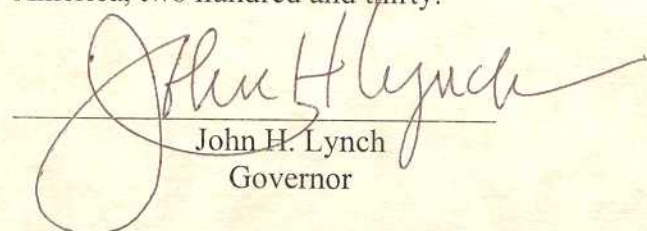 America, two hundred and thirty.
John H Lynch
John H. Lynch
Governor